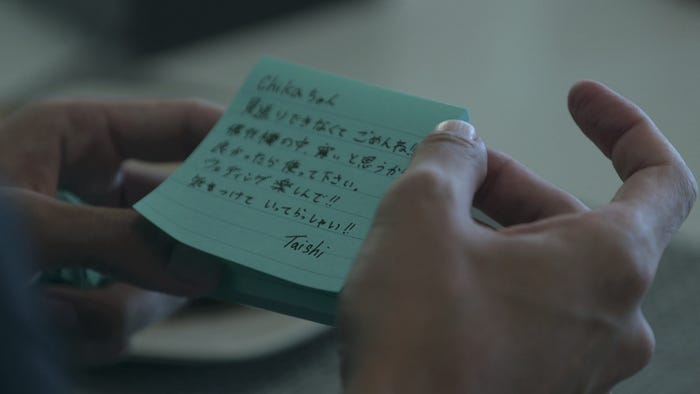 Chikaちゃん
見送りできなくて ごめんね!!
飛行機の中、寒いと思うか
良かったら 使って下さい。
ウェディング 楽しんで!!
気をつけて いってらっしゃい!!
Taishi